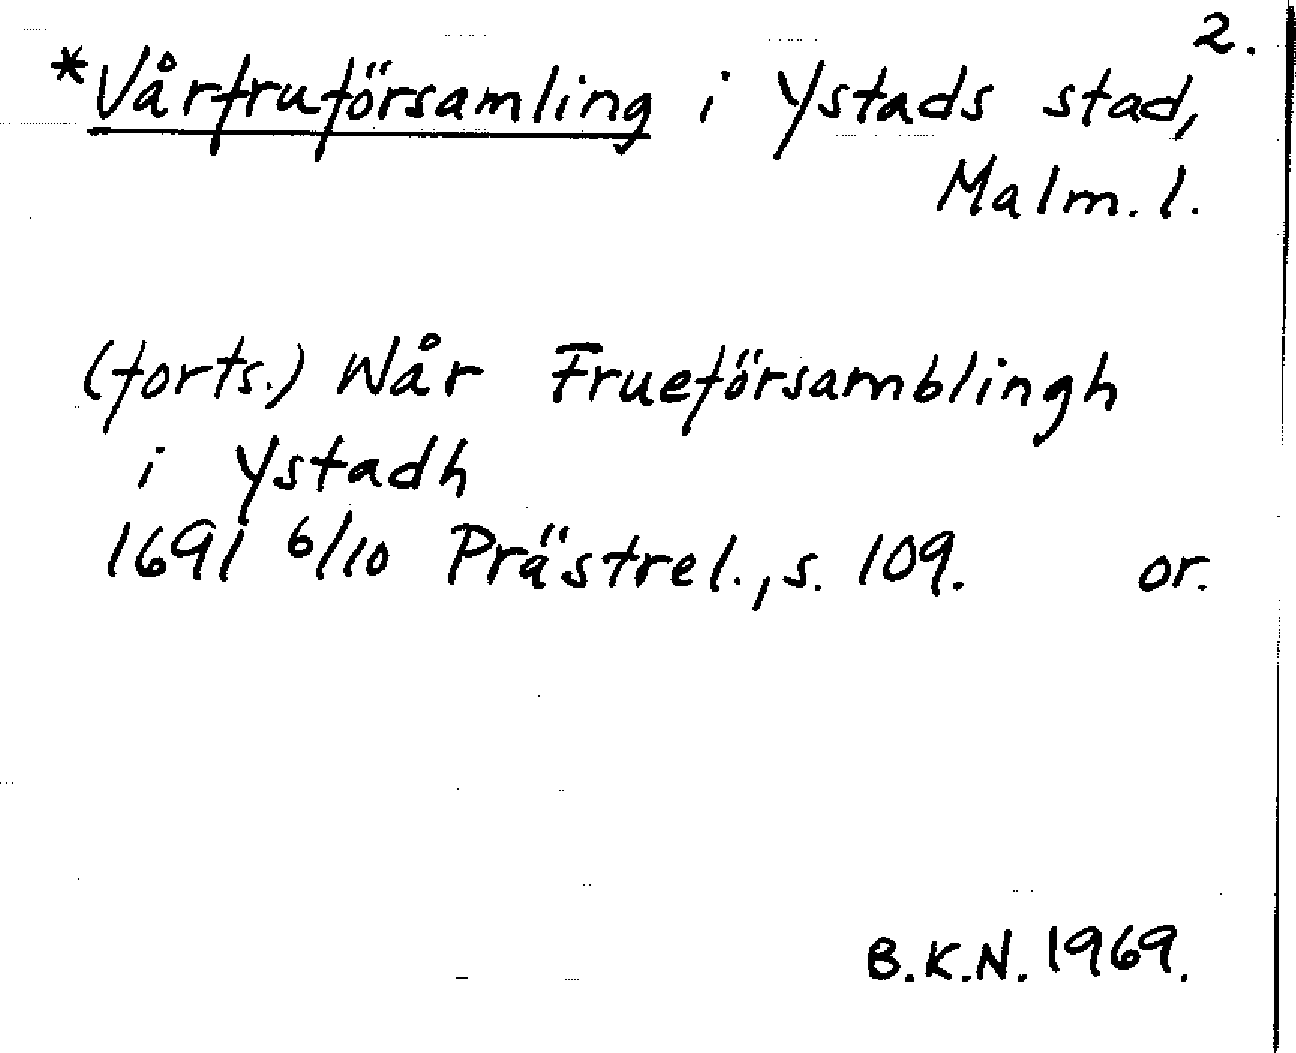 2.
*Vårfruförsamling i Ystads stad,
Malm. l.
(forts.) Wår Frueförsamblingh
i Ystadh
1691 6/10 Prästrel., s. 109. or.
B.K.N. 1969.